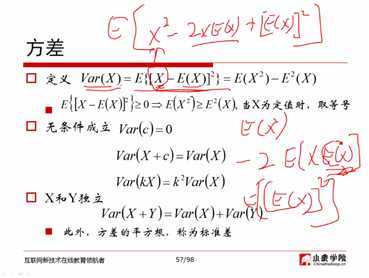 E[X² - 2XE(X) + [E(X)]²]
方差
定义 Var(X) = E{[X - E(X)]²} = E(X²) - E²(X)
E{[X - E(X)]²} ≥ 0 ⇒ E(X²) ≥ E²(X), 当X为定值时，取等号
E(X²)
无条件成立 Var(c) = 0
- 2E(XE(X))
Var(X + c) = Var(X)
Var(kX) = k²Var(X)
E[[E(X)]²]
X和Y独立
Var(X + Y) = Var(X) + Var(Y)
此外，方差的平方根，称为标准差
互联网新技术在线教育领航者
57/98
小象学院